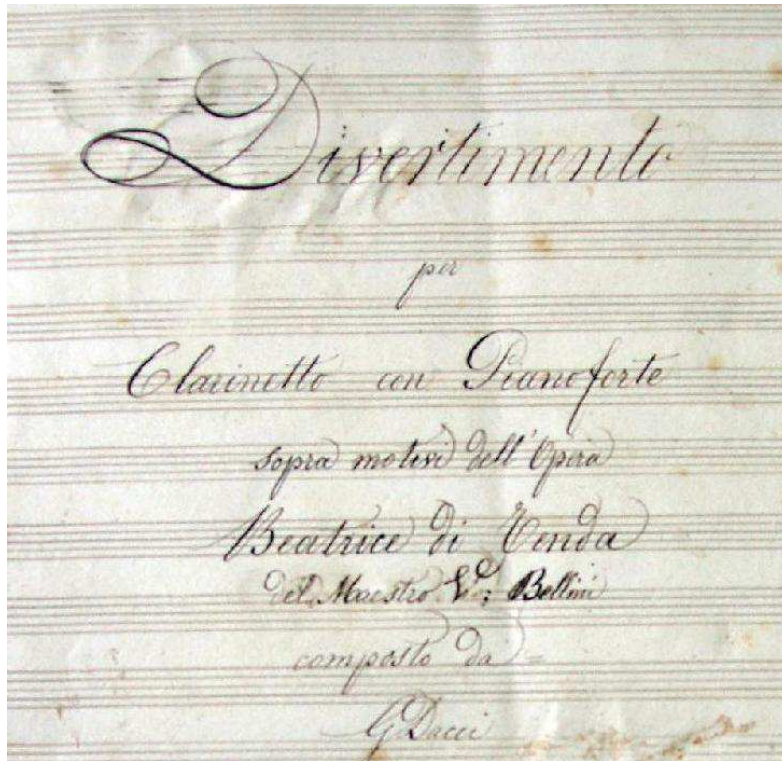 Divertimento
per
Clarinetto con Pianoforte
sopra motivi dell' Opera
Beatrice di Tenda
del Maestro Bellini
composto da =
G Dacci